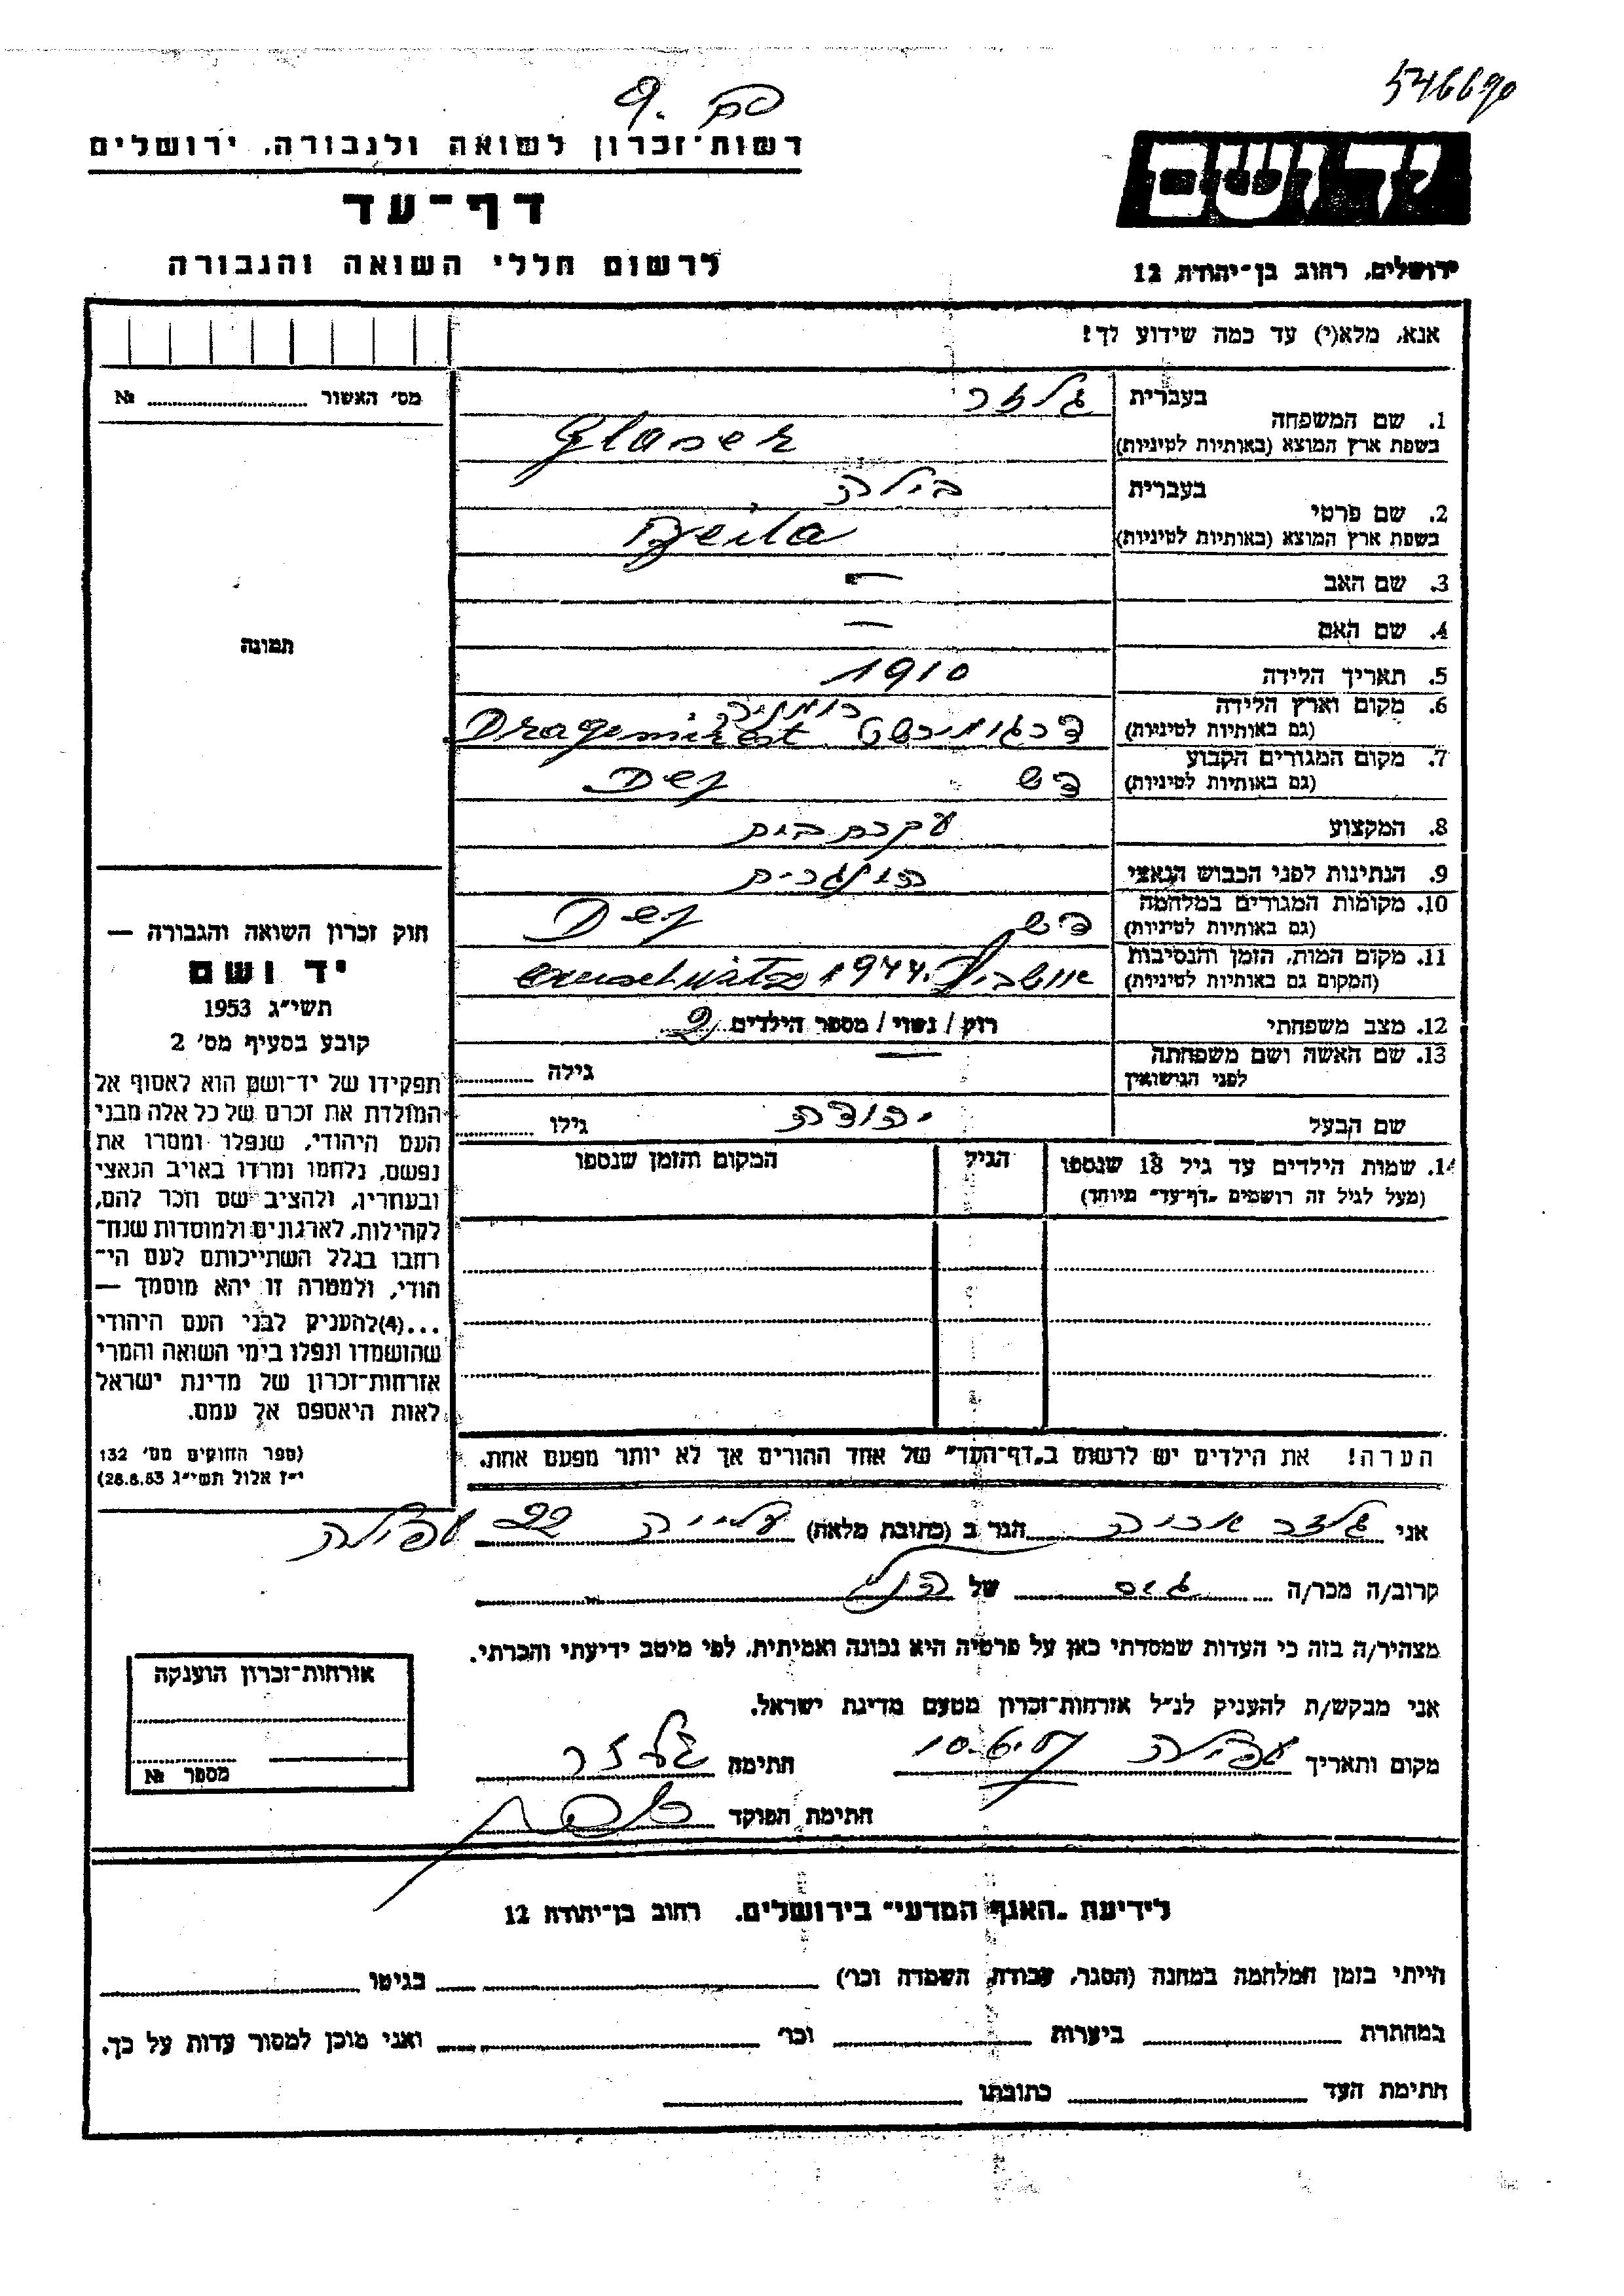 546690
רשות־זכרון לשואה ולגבורה, ירושלים
יד ושם
דף־עד
לרשום חללי השואה והגבורה
ירושלים, רחוב בן־יהודה 12
אנא, מלא(י) עד כמה שידוע לך!
מס׳ האשור № 
1. שם המשפחה בעברית גלזר
בשפת ארץ המוצא (באותיות לטיניות) Glaser
2. שם פרטי בעברית בילה
בשפת ארץ המוצא (באותיות לטיניות) Beila
3. שם האב –
4. שם האם –
תמונה
5. תאריך הלידה 1910
6. מקום וארץ הלידה (גם באותיות לטיניות) דרגומירשט רומניה Dragomirest
7. מקום המגורים הקבוע (גם באותיות לטיניות) דש Dej
8. המקצוע עקרת בית
9. הנתינות לפני הכבוש הנאצי הונגרית
10. מקומות המגורים במלחמה (גם באותיות לטיניות) דש Dej
11. מקום המות, הזמן והנסיבות (המקום גם באותיות לטיניות) אושביץ 1944
12. מצב משפחתי רוק / נשוי / מספר הילדים 2
13. שם האשה ושם משפחתה לפני הנישואין – גילה
שם הבעל יהודה גילו
חוק זכרון השואה והגבורה —
יד ושם
תשי״ג 1953
קובע בסעיף מס׳ 2
תפקידו של יד־ושם הוא לאסוף אל
המולדת את זכרם של כל אלה מבני
העם היהודי, שנפלו ומסרו את
נפשם, נלחמו ומרדו באויב הנאצי
ובעוזריו, ולהציב שם וזכר להם,
לקהילות, לארגונים ולמוסדות שנח־
רבו בגלל השתייכותם לעם הי־
הודי, ולמטרה זו יהא מוסמך —
...(4)להעניק לבני העם היהודי
שהושמדו ונפלו בימי השואה והמרי
אזרחות־זכרון של מדינת ישראל
לאות היאספם אל עמם.
(ספר החוקים מס׳ 132
י״ז אלול תשי״ג 28.8.53)
14. שמות הילדים עד גיל 18 שנספו הגיל המקום והזמן שנספו
(מעל לגיל זה רושמים „דף־עד״ מיוחד)
הערה! את הילדים יש לרשום ב„דף־העד״ של אחד ההורים אך לא יותר מפעם אחת.
אני גלזר הגר ב (כתובת מלאה) עלייה 22 עפולה
קרוב/ה מכר/ה גיס של הנ״ל
מצהיר/ה בזה כי העדות שמסרתי כאן על פרטיה היא נכונה ואמיתית, לפי מיטב ידיעתי והכרתי.
אני מבקש/ת להעניק לנ״ל אזרחות־זכרון מטעם מדינת ישראל.
מקום ותאריך עפולה 10.6.57 חתימה גלזר
חתימת הפוקד
אזרחות־זכרון הוענקה
מספר №
לידיעת „האגף המדעי״ בירושלים, רחוב בן־יהודה 12
הייתי בזמן המלחמה במחנה (הסגר, עבודה, השמדה וכו׳) בגיטו
במחתרת ביערות וכו׳ ואני מוכן למסור עדות על כך.
חתימת העד כתובתו